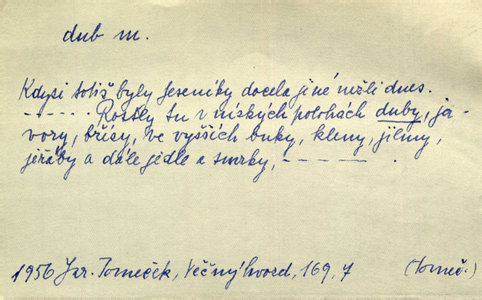 dub m.
Kdysi totiž byly Jeseníky docela jiné nežli dnes.
- - - - - . Rostly tu v nízkých polohách duby, ja-
vory, břízy, ve vyšších buky, kleny, jilmy,
jeřáby a dále jedle a smrky, - - - - - - .
1956 Jar. Tomeček, Věčný hvozd, 169, 7 (Tomeč.)